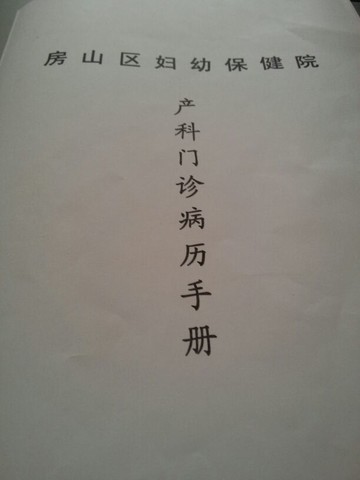 房山区妇幼保健院
产科门诊病历手册